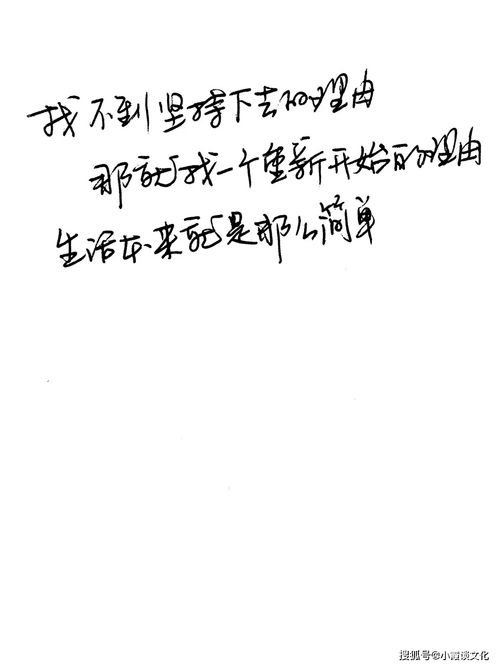 找不到坚持下去的理由
那就找一个重新开始的理由
生活本来就是那么简单
搜狐号@小霞谈文化